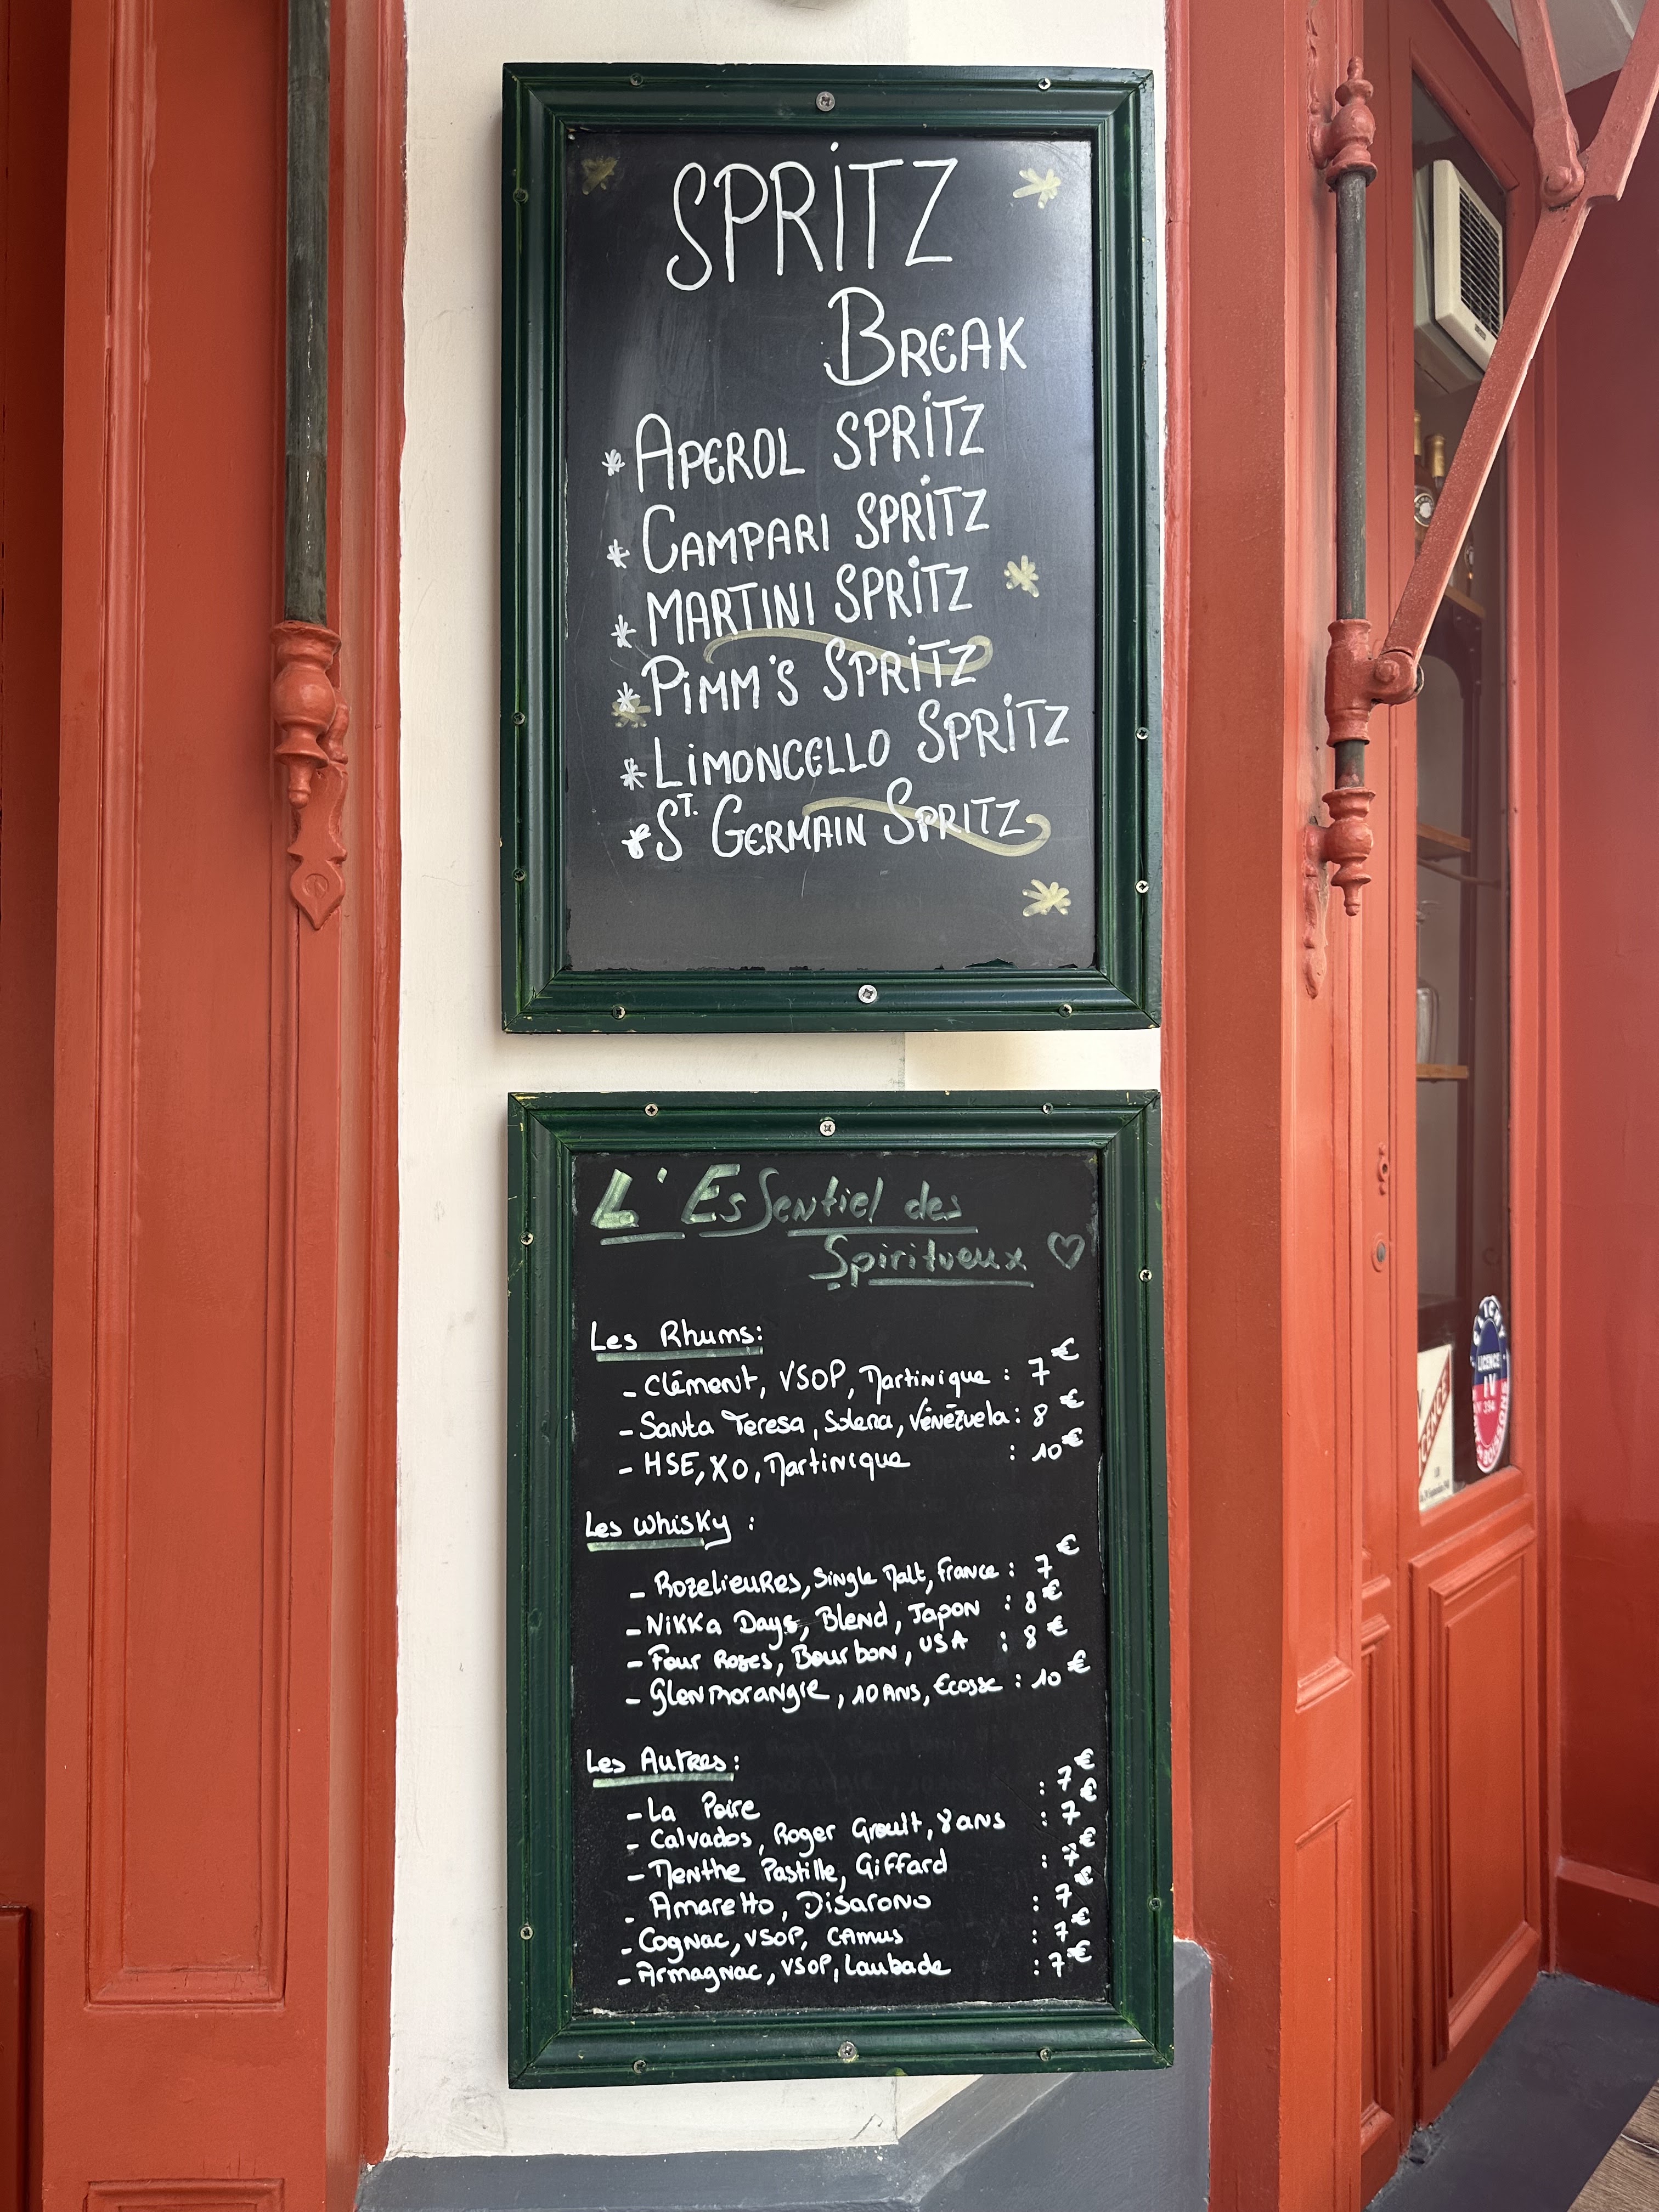 SPRiTZ
BREAK
* APEROL SPRiTZ
* CAMPARI SPRiTZ
* MARTINI SPRiTZ
* PiMM'S SPRiTZ
* LiMONCELLO SPRiTZ
* ST. GERMAIN SPRITZ
L'Essentiel des
Spiritueux ♡
Les Rhums:
- Clément, VSOP, Martinique : 7€
- Santa Teresa, Solera, Vénézuela : 8€
- HSE, XO, Martinique : 10€
Les Whisky :
- Rozelieures, Single Malt, France : 7€
- Nikka Days, Blend, Japon : 8€
- Four Roses, Bourbon, USA : 8€
- Glenmorangie, 10 Ans, Ecosse : 10€
Les Autres:
- La Poire : 7€
- Calvados, Roger Groult, 8 ans : 7€
- Menthe Pastille, Giffard : 7€
- Amaretto, Disarono : 7€
- Cognac, VSOP, Camus : 7€
- Armagnac, VSOP, Laubade : 7€
LICENCE
IV